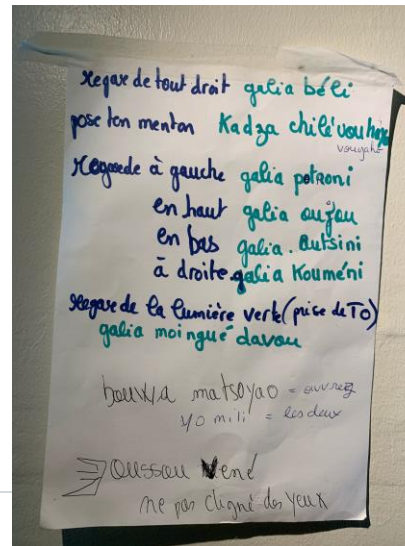 Regarde tout droit galia béli
pose ton menton Kadza chilévou
vouyaho
Regarde à gauche galia potroni
en haut galia oujou
en bas galia. Outsini
à droite galia Kouméni
Regarde la lumière verte (prise de TO)
galia moingué davou
matsoyao = ouvrez
y/o mili = les deux
Oussou Vené
ne pas cligné des yeux